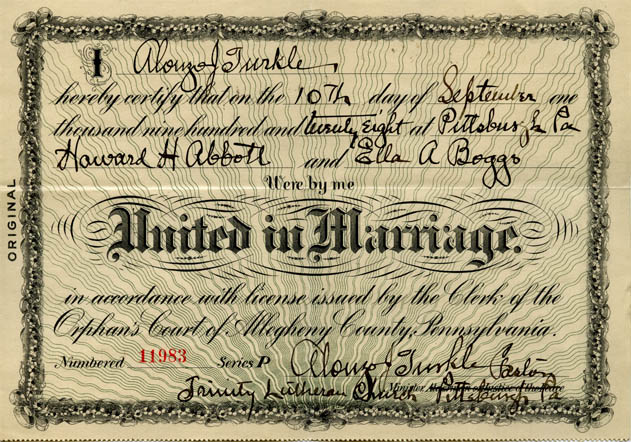 ORIGINAL
I Alonzo J Turkle,
hereby certify that on the 10th day of September one
thousand nine hundred and twenty eight at Pittsburgh Pa
Howard H Abbott and Ella A Boggs
Were by me
United in Marriage.
in accordance with license issued by the Clerk of the
Orphan's Court of Allegheny County, Pennsylvania.
Numbered 11983 Series P Alonzo J Turkle Pastor
Minister Alderman or Justice of the Peace
Trinity Lutheran Church Pittsburgh Pa